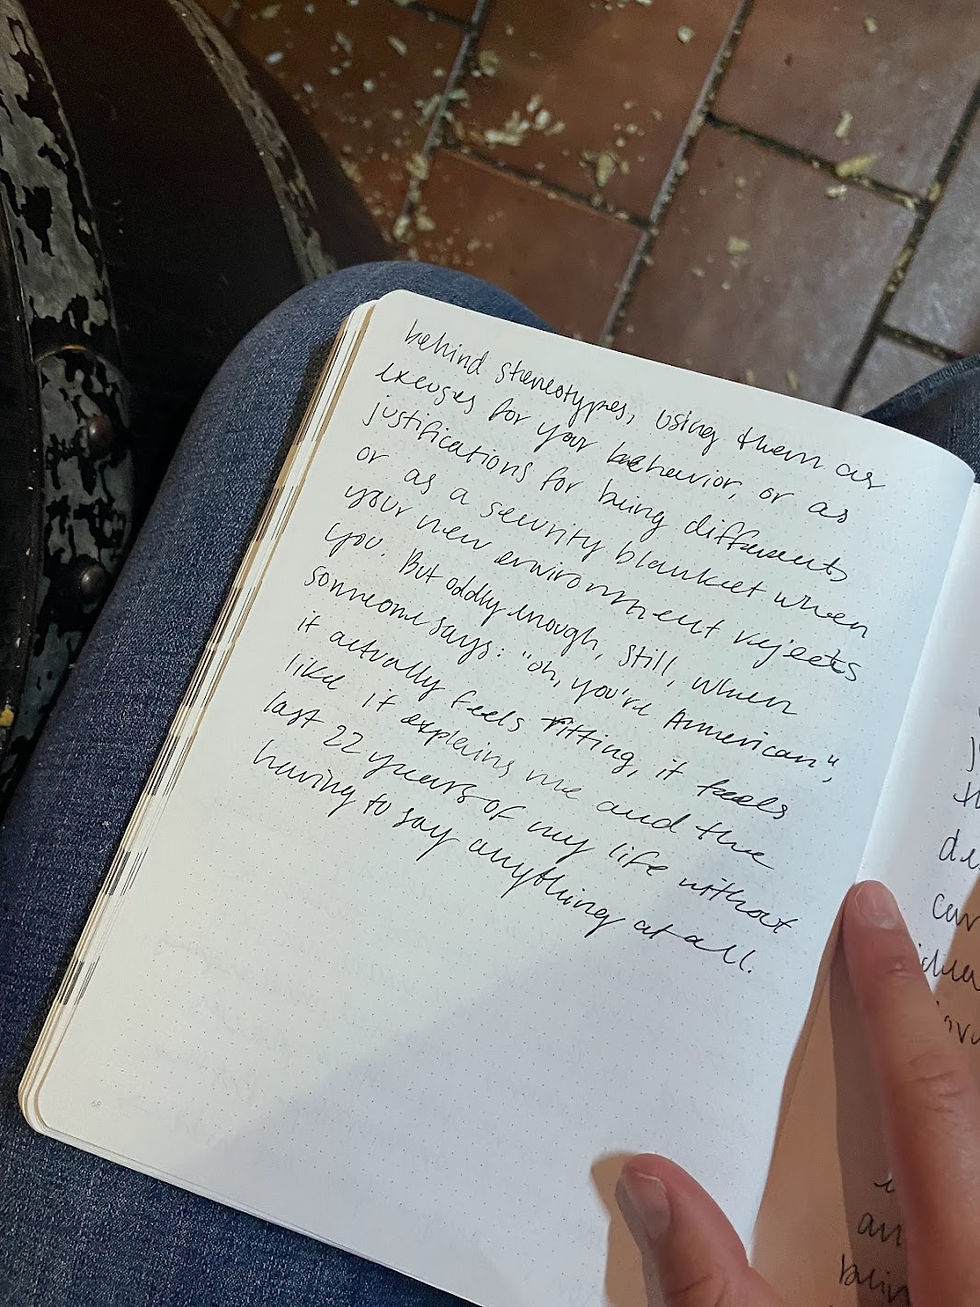 behind stereotypes, using them as
excuses for your behavior, or as
justifications for being different,
or as a security blanket when
your new environment rejects
you. But oddly enough, still, when
someone says: "oh, you're American",
it actually feels fitting, it feels
like it explains me and the
last 22 years of my life without
having to say anything at all.